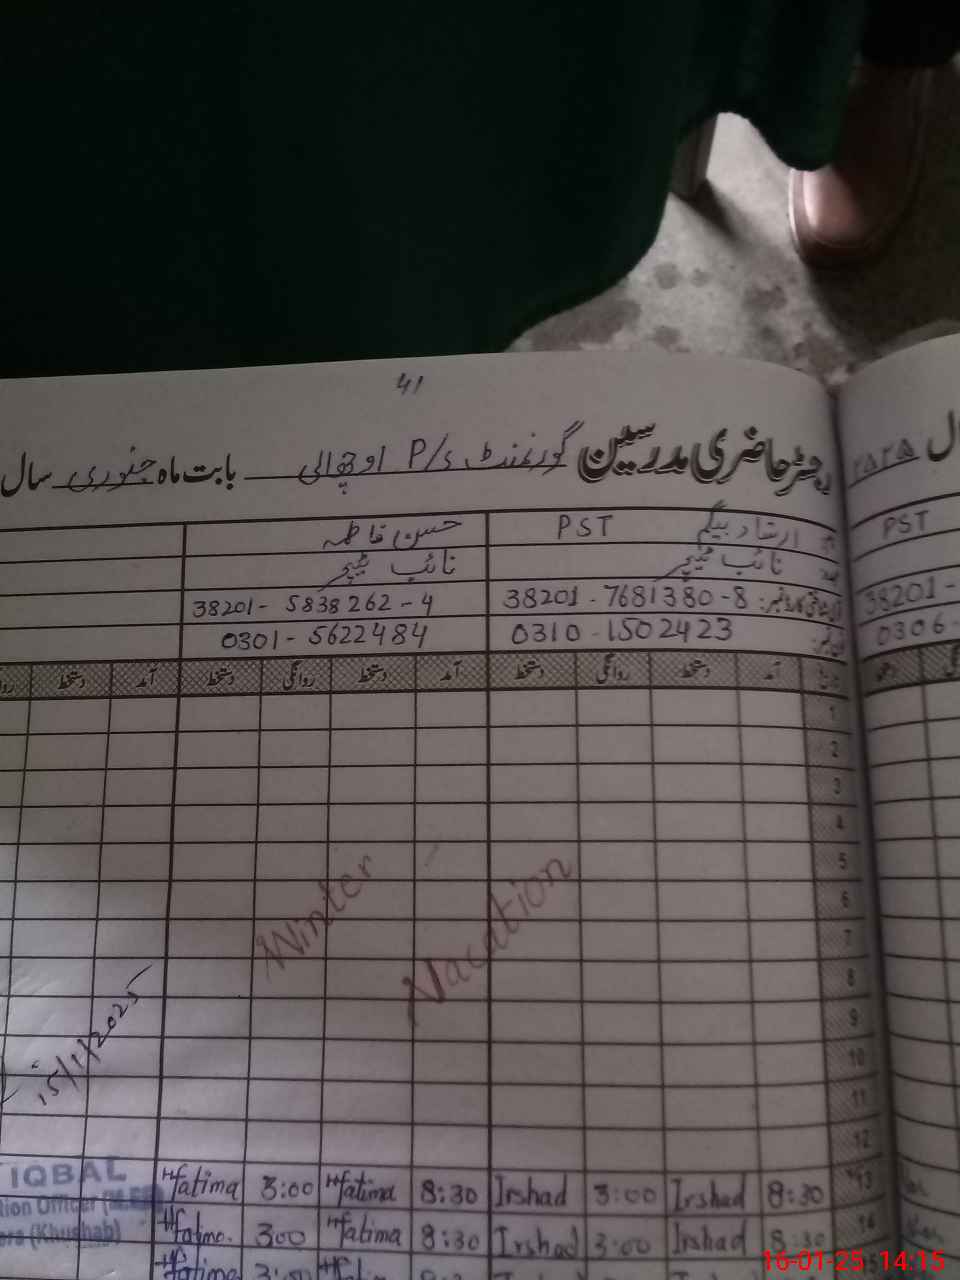 41
رجسٹر حاضری مدرسین گورنمنٹ P/S اوچھالی بابت ماہ جنوری سال
ارشاد بیگم PST حسن فاطمہ
عہدہ نائب ٹیچر نائب ٹیچر
38201-7681380-8 38201-5838262-4
0310-1502423 0301-5622484
آمد دستخط روانگی دستخط آمد دستخط روانگی دستخط آمد دستخط
1
2
3
4
5
6
7
8
9
10
11
12
Winter Vacation
15/1/2025
IQBAL
tion Officer
(Khushab)
H fatima 3:00 H fatima 8:30 Irshad 3:00 Irshad 8:30 13
fatima 300 H fatima 8:30 Irshad 3:00 Irshad 8:30 14
fatima
۲۰۲۵
PST
38201-
0306-
16-01-25 14:15